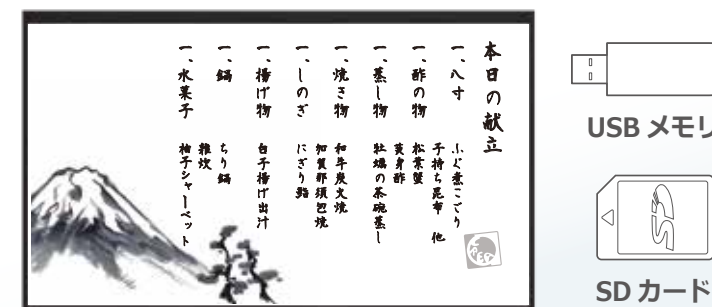 本日の献立
一、八寸
ふぐ煮こごり
子持ち昆布 他
一、酢の物
松葉蟹
黄身酢
一、蒸し物
牡蠣の茶碗蒸し
一、焼き物
和牛炭火焼
加賀那須包焼
一、しのぎ
にぎり鮨
一、揚げ物
白子揚げ出汁
一、鍋
ちり鍋
雑炊
一、水菓子
柚子シャーベット
USB メモリ
SD
SD カード